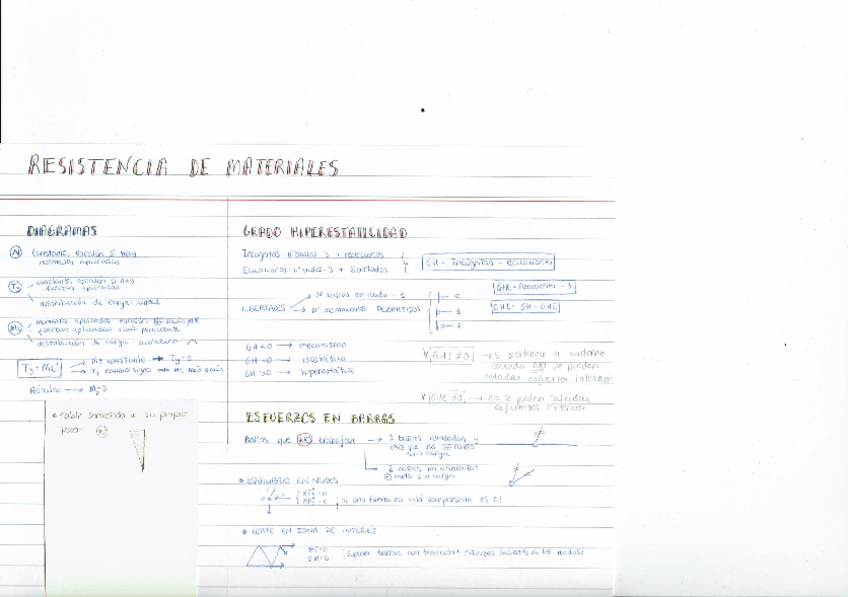 RESISTENCIA DE MATERIALES
DIAGRAMAS
N constante, escalón si hay
normales aplicadas
Ty constante, escalón si hay
fuerzas aplicadas
distribución de carga: lineal
Mz
distribución de carga: curvatura
Mz constante → Ty=0
Ty cambia signo →
Rótula → Mz=0
• cable sometido a su propio
peso: N
GRADO HIPERESTATICIDAD
Incógnitas: nº barras·3 + reacciones
Ecuaciones: nº nudos·3 + libertades
GH = Incógnitas - ecuaciones
LIBERTADES
nº barras en nudo - 1
nº movimientos PERMITIDOS
0
1
2
GHE = Reacciones - 3
GHI = GH - GHE
GH <0 → mecanismo
GH =0 → isostático
GH >0 → hiperestático
∀ GHI ≠0 → si pertenece a contorno
cerrado NO se pueden
calcular esfuerzos internos
∀ GHE ≠0 → no se pueden calcular
esfuerzos externos
ESFUERZOS EN BARRAS
Barras que NO trabajan → 2 barras alineadas y
otra que no
sin carga
2 barras no alineadas
nudo sin carga
• EQUILIBRIO EN NUDOS
Si una fuerza no está compensada es 0!
• CORTE EN ZONA DE INTERÉS
¡Suponer barras con tracción! (fuerzas salientes de los nudos)